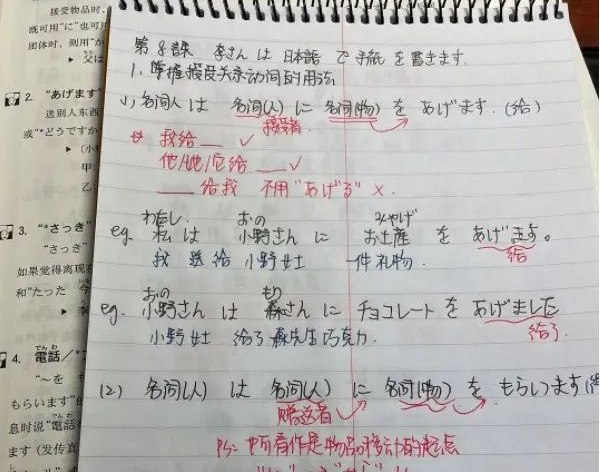 接受物品时,
既可用"に"也可用
团体时，则用"か
▶ 父は
2. "あげます"
送别人东西
或"*どうですか
▶ (小
甲:
乙:
3. "*さっき"
"さっき"
如果觉得离现在
和"たった
4. 電話／*
でんわ
"～を
もらいます"的
息时说"電話
ます(发传真
第8課 李さん は 日本語 で 手紙 を書きます.
1. 掌握授受关系动词的用法
(1) 名词人 は 名词(人) に 名词(物) を あげます. (给)
接受者.
我给 ___ ✓
他/她/它给 ___ ✓
___ 给我 不用"あげる" ×.
わたし おの みやげ
eg. 私は 小野さん に お土産 を あげます。
给
我 送给 小野女士 一件礼物.
おの もり
eg. 小野さん は 森さん に チョコレート を あげました
小野女士 给了 森先生 巧克力.
给了.
(2) 名词(人) は 名词(人) に 名词(物) を もらいます
赠送者